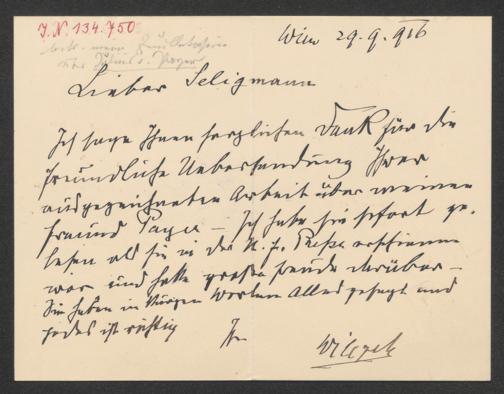 J.N. 134.750
betr. mein Feuilleton
über Julius v. Payer
Wien 29.9.916
Lieber Seligmann
Ich sage Ihnen herzlichen Dank für die
freundliche Uebersendung Ihrer
ausgezeichneten Arbeit über meinen
Freund Payer – Ich habe sie sofort ge-
lesen als sie in der N. fr. Presse erschienen
war und hatte große Freude darüber –
Sie haben in kurzen Worten Alles gesagt und
jedes ist richtig
Ihr
Wilczek